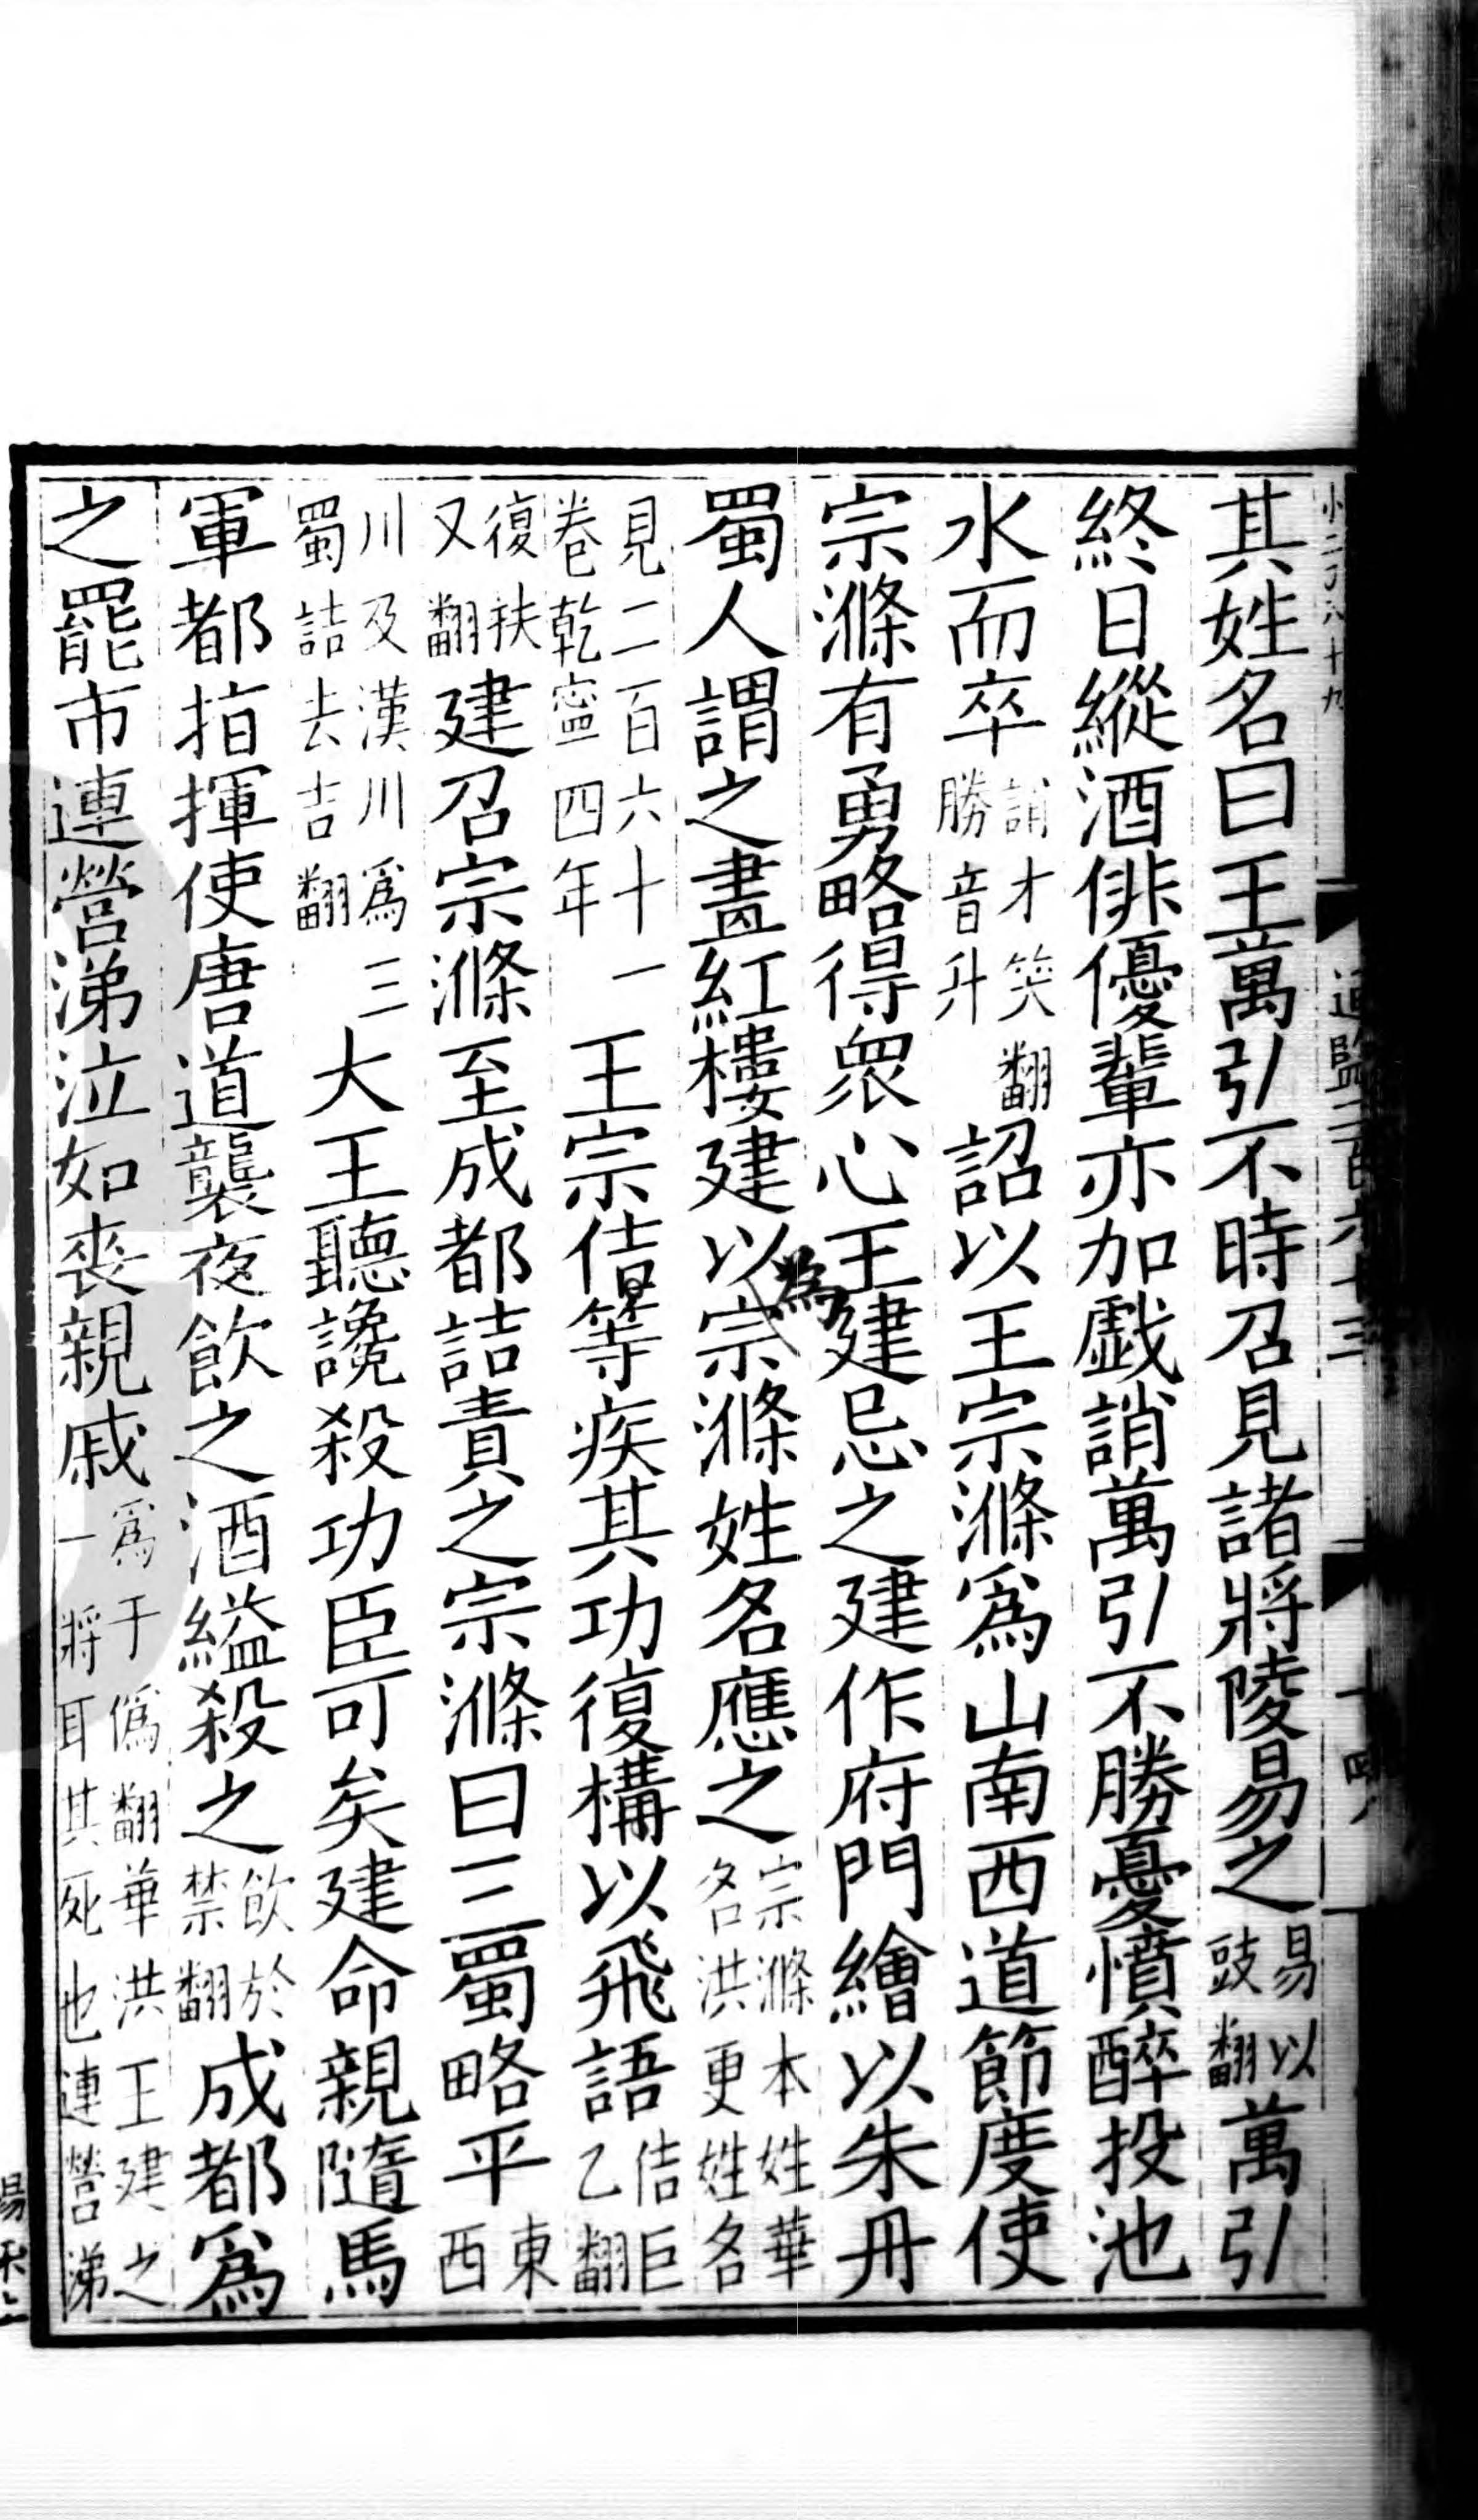 其姓名曰王萬引不時召見諸將陵易之易以豉翻萬引
終日縱酒俳優輩亦加戲誚萬引不勝憂憤醉投池
水而卒誚才笑翻勝音升詔以王宗滌爲山南西道節度使
宗滌有勇略得衆心王建忌之建作府門繪以朱丹
蜀人謂之畫紅樓建以宗滌姓名應之宗滌本姓華名洪更姓名
爲
見二百六十一卷乾寧四年王宗佶等疾其功復構以飛語佶巨乙翻
復扶又翻建召宗滌至成都詰責之宗滌曰三蜀略平東西
川及漢川爲三蜀詰去吉翻大王聽讒殺功臣可矣建命親隨馬
軍都指揮使唐道襲夜飲之酒縊殺之飲於禁翻成都爲
之罷市連營涕泣如喪親戚爲于僞翻華洪王建之一將耳其死也連營涕
十四